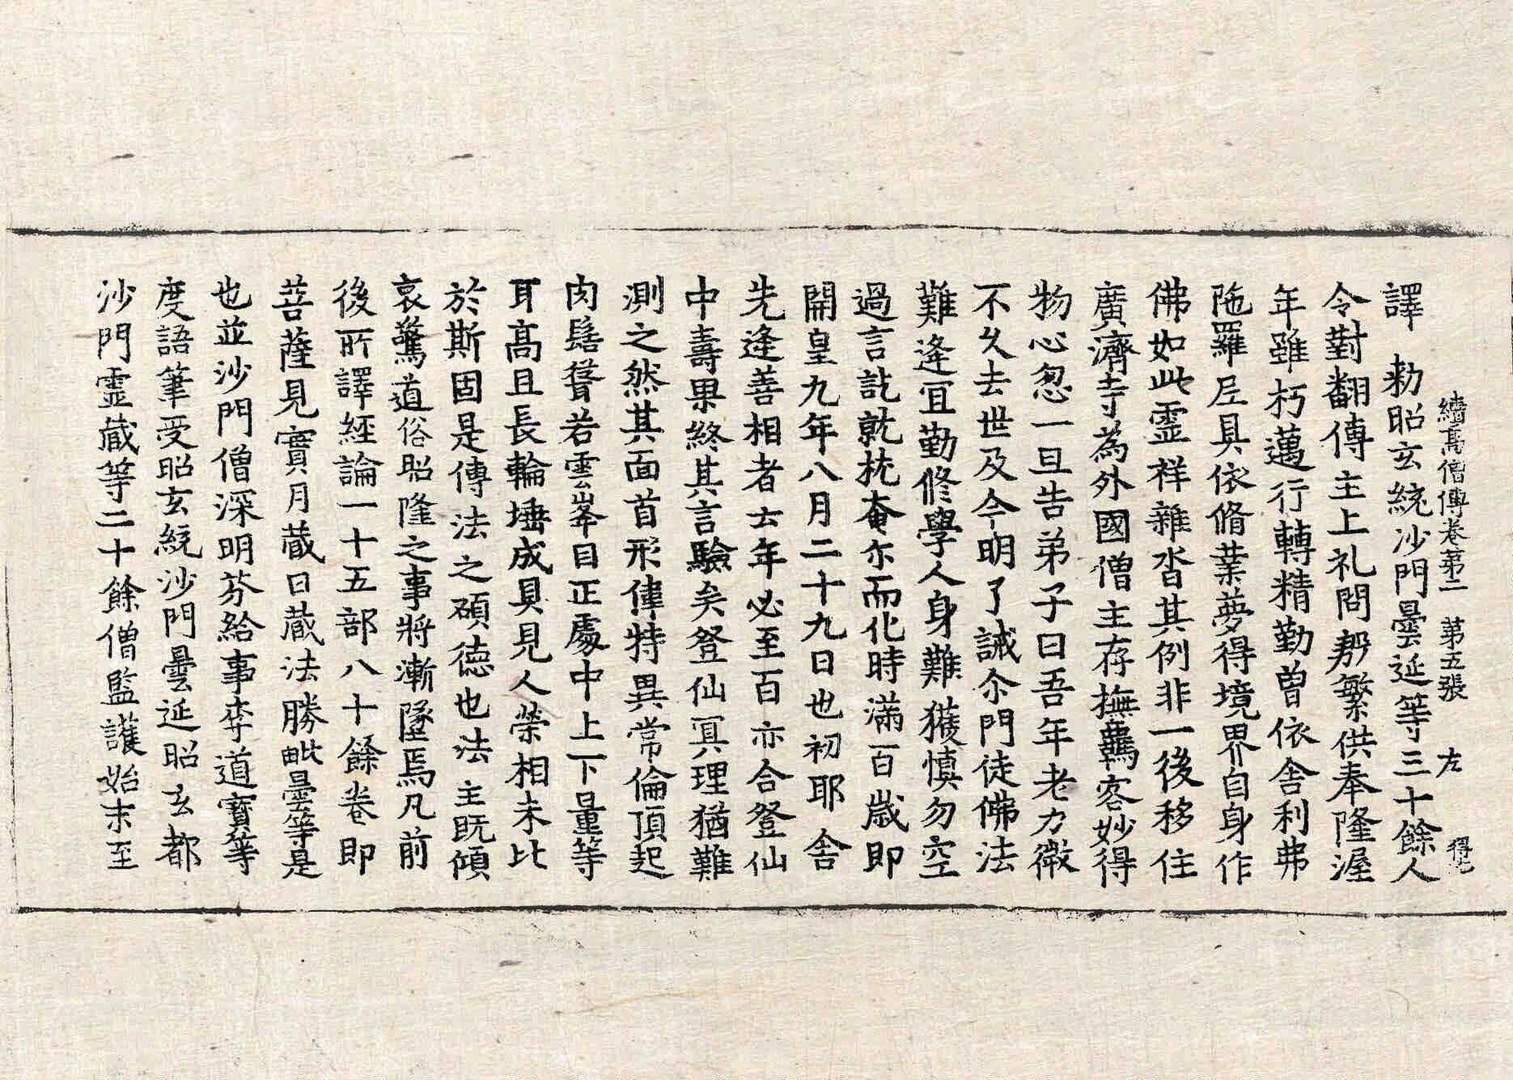 續高僧傳卷第二 第五張 左
譯 勅昭玄統沙門曇延等三十餘人
令對翻傳主上礼問殷繁供奉隆渥
年雖朽邁行轉精勤曽依舎利弗
陁羅尼具依脩業夢得境界自身作
佛如此霊祥雜沓其例非一後移住
廣濟寺為外國僧主存撫羇客妙得
物心忽一旦告弟子曰吾年老力微
不久去世及今明了誡尒門徒佛法
難逢宜勤修學人身難獲慎勿空
過言訖就枕奄尒而化時滿百歳即
開皇九年八月二十九日也初耶舎
先逢善相者云年必至百亦合登仙
中壽果終其言驗矣登仙冥理猶難
測之然其面首形偉特異常倫頂起
肉髻聳若雲峯目正處中上下量等
耳高且長輪埵成具見人榮相未比
於斯固是傳法之碩德也法主既傾
哀驚道俗昭隆之事將漸墜焉凡前
後所譯經論一十五部八十餘卷即
菩薩見實月蔵日蔵法勝毗曇等是
也並沙門僧深明芬給事李道寳等
度語筆受昭玄統沙門曇延昭玄都
沙門霊蔵等二十餘僧監護始末至